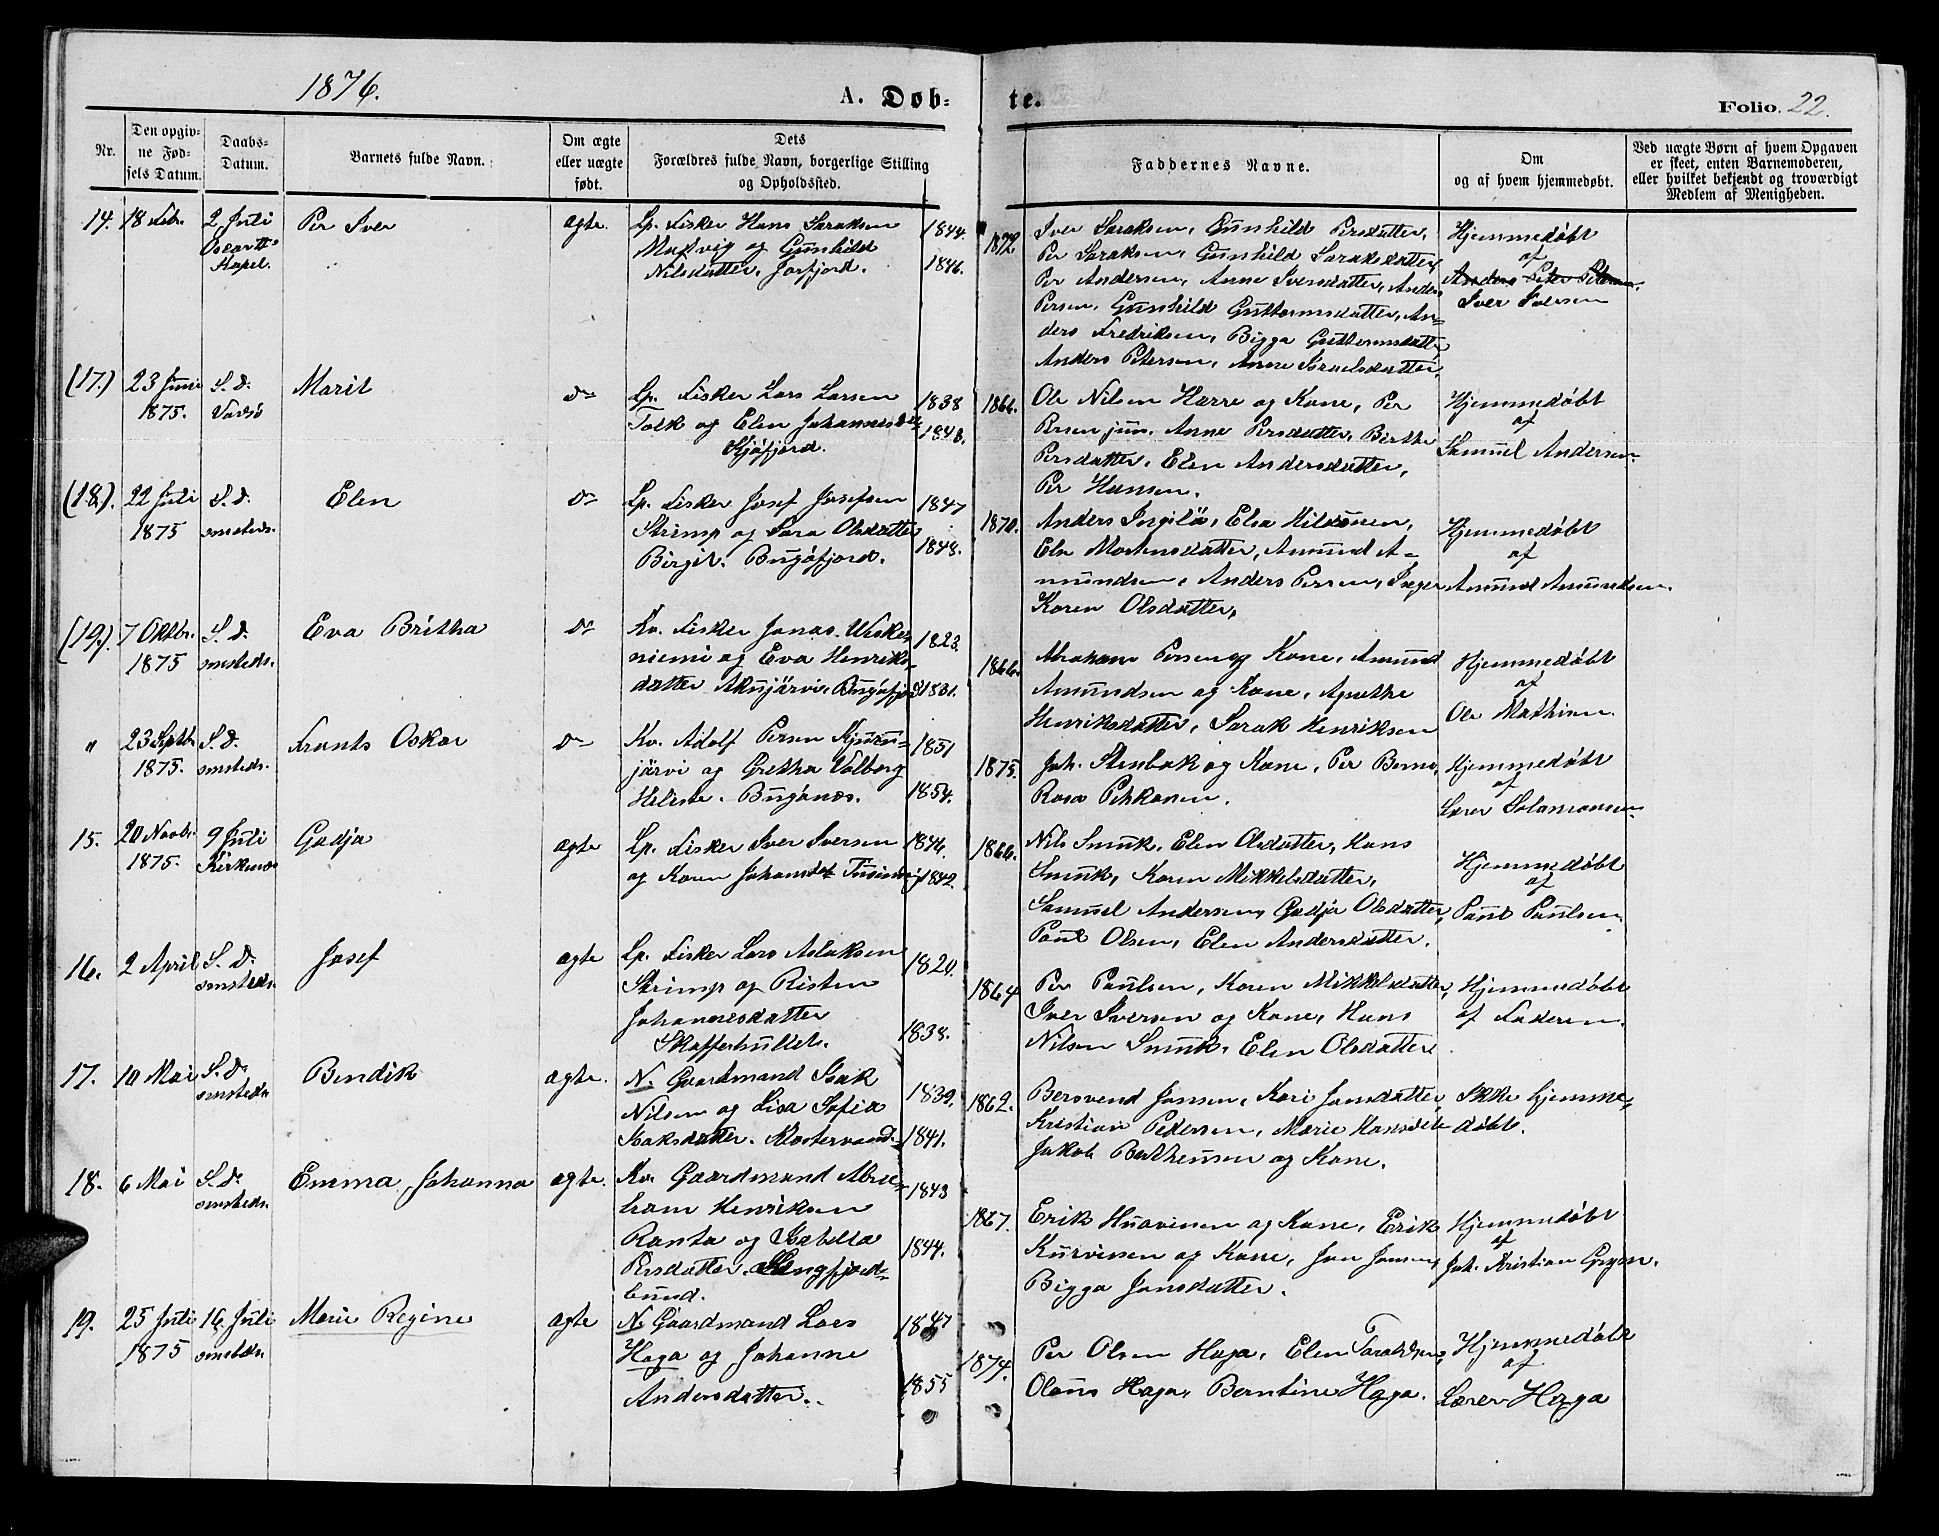 1876.
A. Døb-
te.
Folio. 22.
Nr.
Den opgiv-
ne Fød-
sels Datum.
Daabs-
Datum.
Barnets fulde Navn.
Om ægte
eller uægte
født.
Dets
Forældres fulde Navn, borgerlige Stilling
og Opholdssted.
Faddernes Navne.
Om
og af hvem hjemmedøbt.
Ved uægte Børn af hvem Opgaven
er skeet, enten Barnemoderen,
eller hvilket bekjendt og troværdigt
Medlem af Menigheden.
14. 18 Febr. 2 Juli
Oscar II
Kapel.
Per Iver
ægte.
Lp. Fisker Hans Saraksen
og Gunhild
Nilsdatter. Jarfjord.
1844.
1846.
1872
Iver Saraksen, Gunhild Persdatter,
Per Saraksen, Gunhild Saraksdatter,
Per Andersen, Anne Iversdatter, Anders
Persen, Gunhild Guttormsdatter, An-
ders Fredriksen, Bigga Guttormsdatt.,
Anders Petersen, Anne Israelsdatter.
Hjemmedøbt
af
Anders Peter Petersen.
Iver Iversen
(17.) 23 Juni
1875.
S. d.
Vadsø
Marit
do
Lp. Fisker Lars Larsen
Tolk og Elen Johannesdtr
Kjøfjord.
1838
1843.
1866.
Ole Nilsen Harre og Kone, Per
Persen jun. Anne Persdatter, Birthe
Persdatter, Elen Andersdatter,
Per Hansen.
Hjemmedøbt
af
Samuel Andersen.
(18.) 22 Juli
1875
S. d.
omsteds.
Elen
do
Lp. Fisker Josef Josefsen
Skrimp og Sara Olsdatter
Birgit. Bugøfjord.
1847
1848.
1870.
Anders Ingilä, Elsa
Else Mortensdatter, Amund A-
mundsen, Anders Persen, Inger
Karen Olsdatter.
Hjemmedøbt
af
Amund Amundsen.
(19.) 7 Oktbr.
1875
S. d.
omsteds.
Eva Britha
do
Kv. Fisker Jonas
niemi og Eva Henriks-
datter Akujärvi, Bugøfjord
1823.
1831.
1866.
Abraham Persen og Kone, Amund
Amundsen og Kone, Agnethe
Henriksdatter, Sarak Henriksen
Hjemmedøbt
af
Ole Mathisen.
" 23 Septbr
1875.
S. d.
omsteds.
Frants Oskar
do
Kv. Adolf Persen
järvi og Gretha Valborg
Helene. Bugønæs.
1851
1854.
1875.
Joh. Stenbak og Kone, Per
Rosa Pekkanen.
Hjemmedøbt
af
Lærer Salamonsen.
15. 20 Novbr.
1875.
9 Juli
Kirkenæs
Gadja
ægte
Lp. Fisker Iver Iversen
og Karen Johansdt
1846.
1842.
1866.
Nils Smuk, Elen Olsdatter, Hans
Smuk, Karen Mikkelsdatter,
Samuel Andersen, Gadja Olsdatter,
Paul Olsen, Elen Andersdatter.
Hjemmedøbt
af
Paul Paulsen
16. 2 April
S. d.
omsteds.
Josef
ægte
Lp. Fisker Lars Aslaksen
Skrimp og Risten
Johannesdatter
Skafferhullet.
1820.
1838.
1864
Per Paulsen, Karen Mikkelsdatter,
Iver Iversen og Kone, Hans
Nilsen Smuk, Elen Olsdatter
Hjemmedøbt
af Faderen.
17. 10 Mai
S. d.
omsteds
Bendik
ægte.
N. Gaardmand Isak
Nilsen og Lisa Sofia
Isaksdatter. Klostervand.
1839.
1841.
1862.
Bersvend Jonsen, Kari Jonsdatter,
Kristian Pedersen, Marie Hansdtr
Jakob og Kone.
Ikke hjemme-
døbt.
18. 6 Mai
S. d.
omsteds.
Emma Johanna
ægte.
Kv. Gaardmand Abra-
ham Henriksen
Ranta og Isabella
Persdatter. Langfjord-
bund.
1843
1844.
1867.
Erik Huovinen og Kone, Erik
Kurvinen og Kone, Jon Jonsen,
Bigga Jonsdatter.
Hjemmedøbt
af
Joh. Kristian
19. 25 Juli
1875
16 Juli
omsteds.
Marie Regine
ægte
N. Gaardmand Lars
Haga og Johanne
Andersdatter.
1847
1855
1874.
Per Olsen Haga, Elen Taraldsen,
Olaus Haga, Berntine Haga.
Hjemmedøbt
af
Lærer Haga